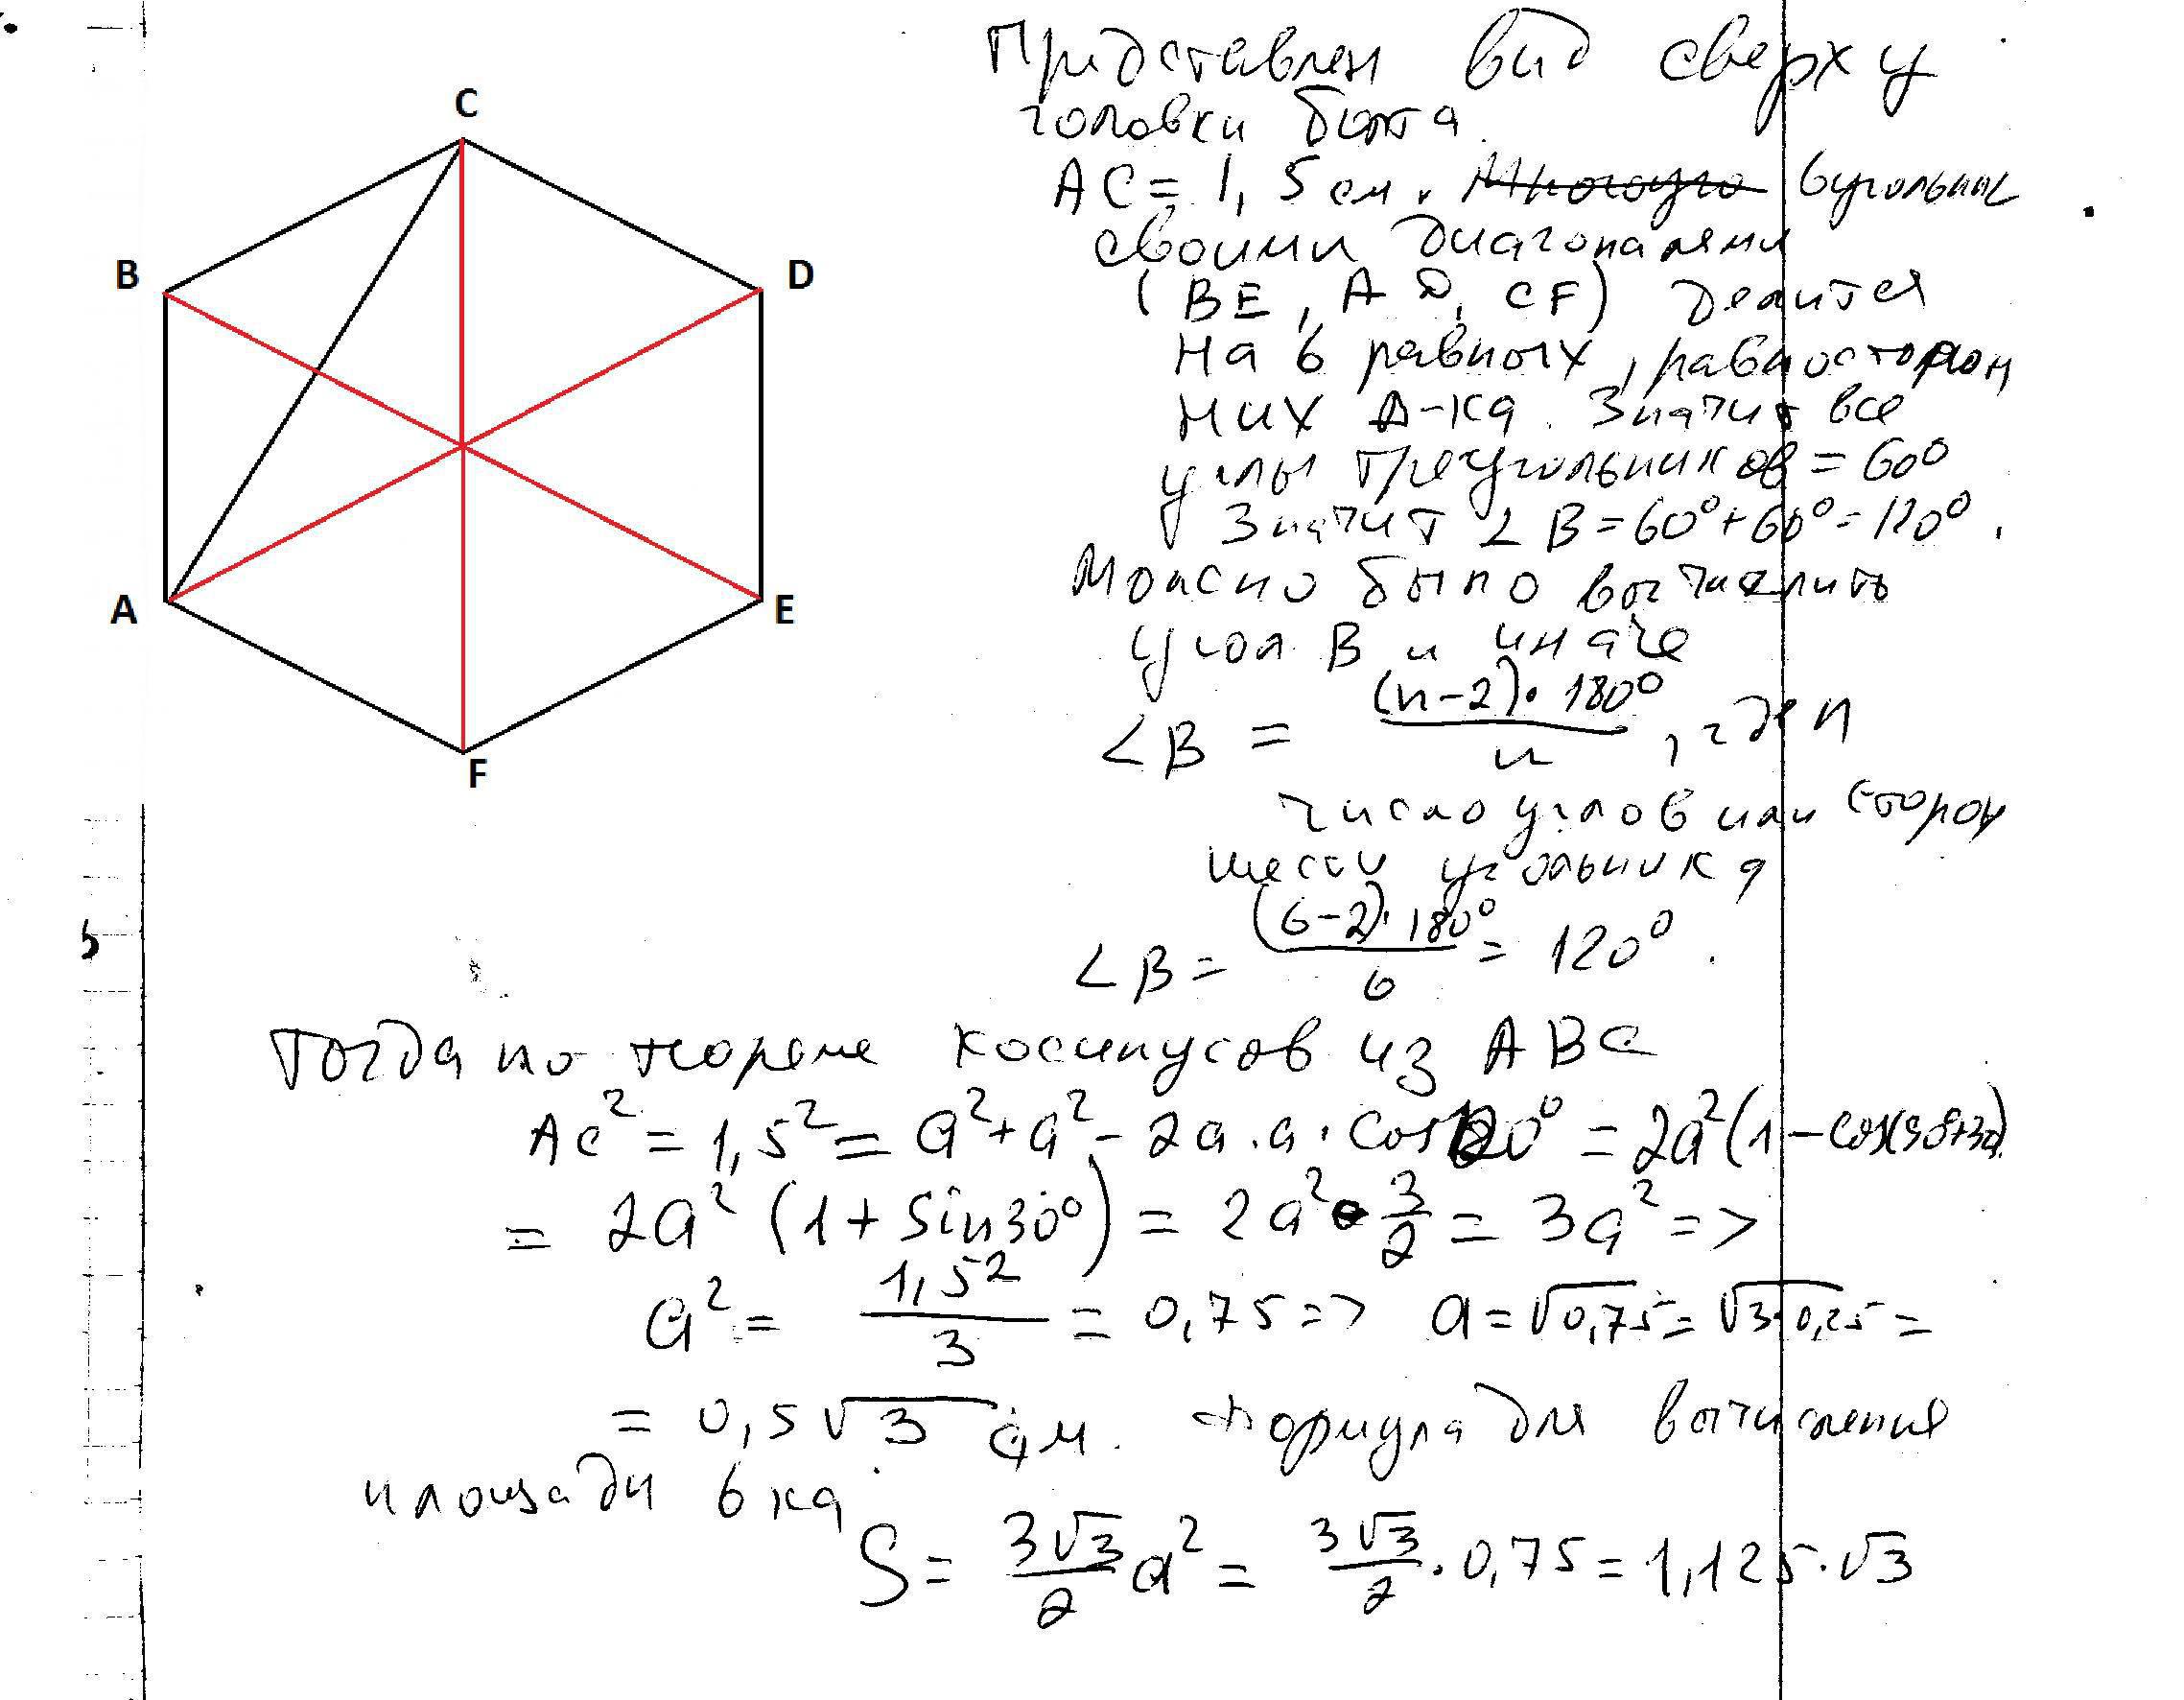 C
B
D
A
E
F
Представлен вид сверху
головки болта.
AC = 1,5 см. Многоуго 6угольник
своими диагоналями
(BE, AD, CF) делится
на 6 равных, равносторон
них Δ-ка. Значит все
углы треугольников = 60°
Значит ∠B = 60° + 60° = 120°.
Можно было вычислить
угол B и иначе
∠B = (n-2)·180° / n, где n
число углов или сторон
шестиугольника
∠B = (6-2)·180° / 6 = 120°.
Тогда по теореме косинусов из ABC
AC² = 1,5² = a² + a² - 2a·a·cos120° = 2a²(1 - cos(90+30)
= 2a² (1 + sin30°) = 2a² · 3/2 = 3a² =>
a² = 1,5² / 3 = 0,75 => a = √0,75 = √3·0,25 =
= 0,5√3 см. Формула для вычисления
площади 6 ка
S = 3√3/2 a² = 3√3/2 · 0,75 = 1,125·√3